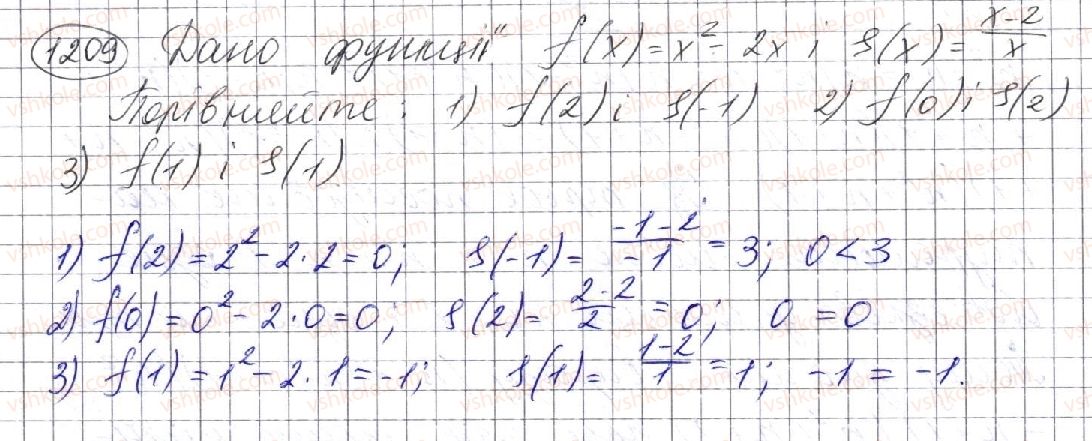 1209 Дано функції f(x)=x²-2x і g(x)=\frac{x-2}{x}
Порівняйте: 1) f(2) і g(-1) 2) f(0) і g(2)
3) f(1) і g(1)
1) f(2)=2²-2·2=0; g(-1)=\frac{-1-2}{-1}=3; 0<3
2) f(0)=0²-2·0=0; g(2)=\frac{2-2}{2}=0; 0=0
3) f(1)=1²-2·1=-1; g(1)=\frac{1-2}{1}=1; -1=-1.